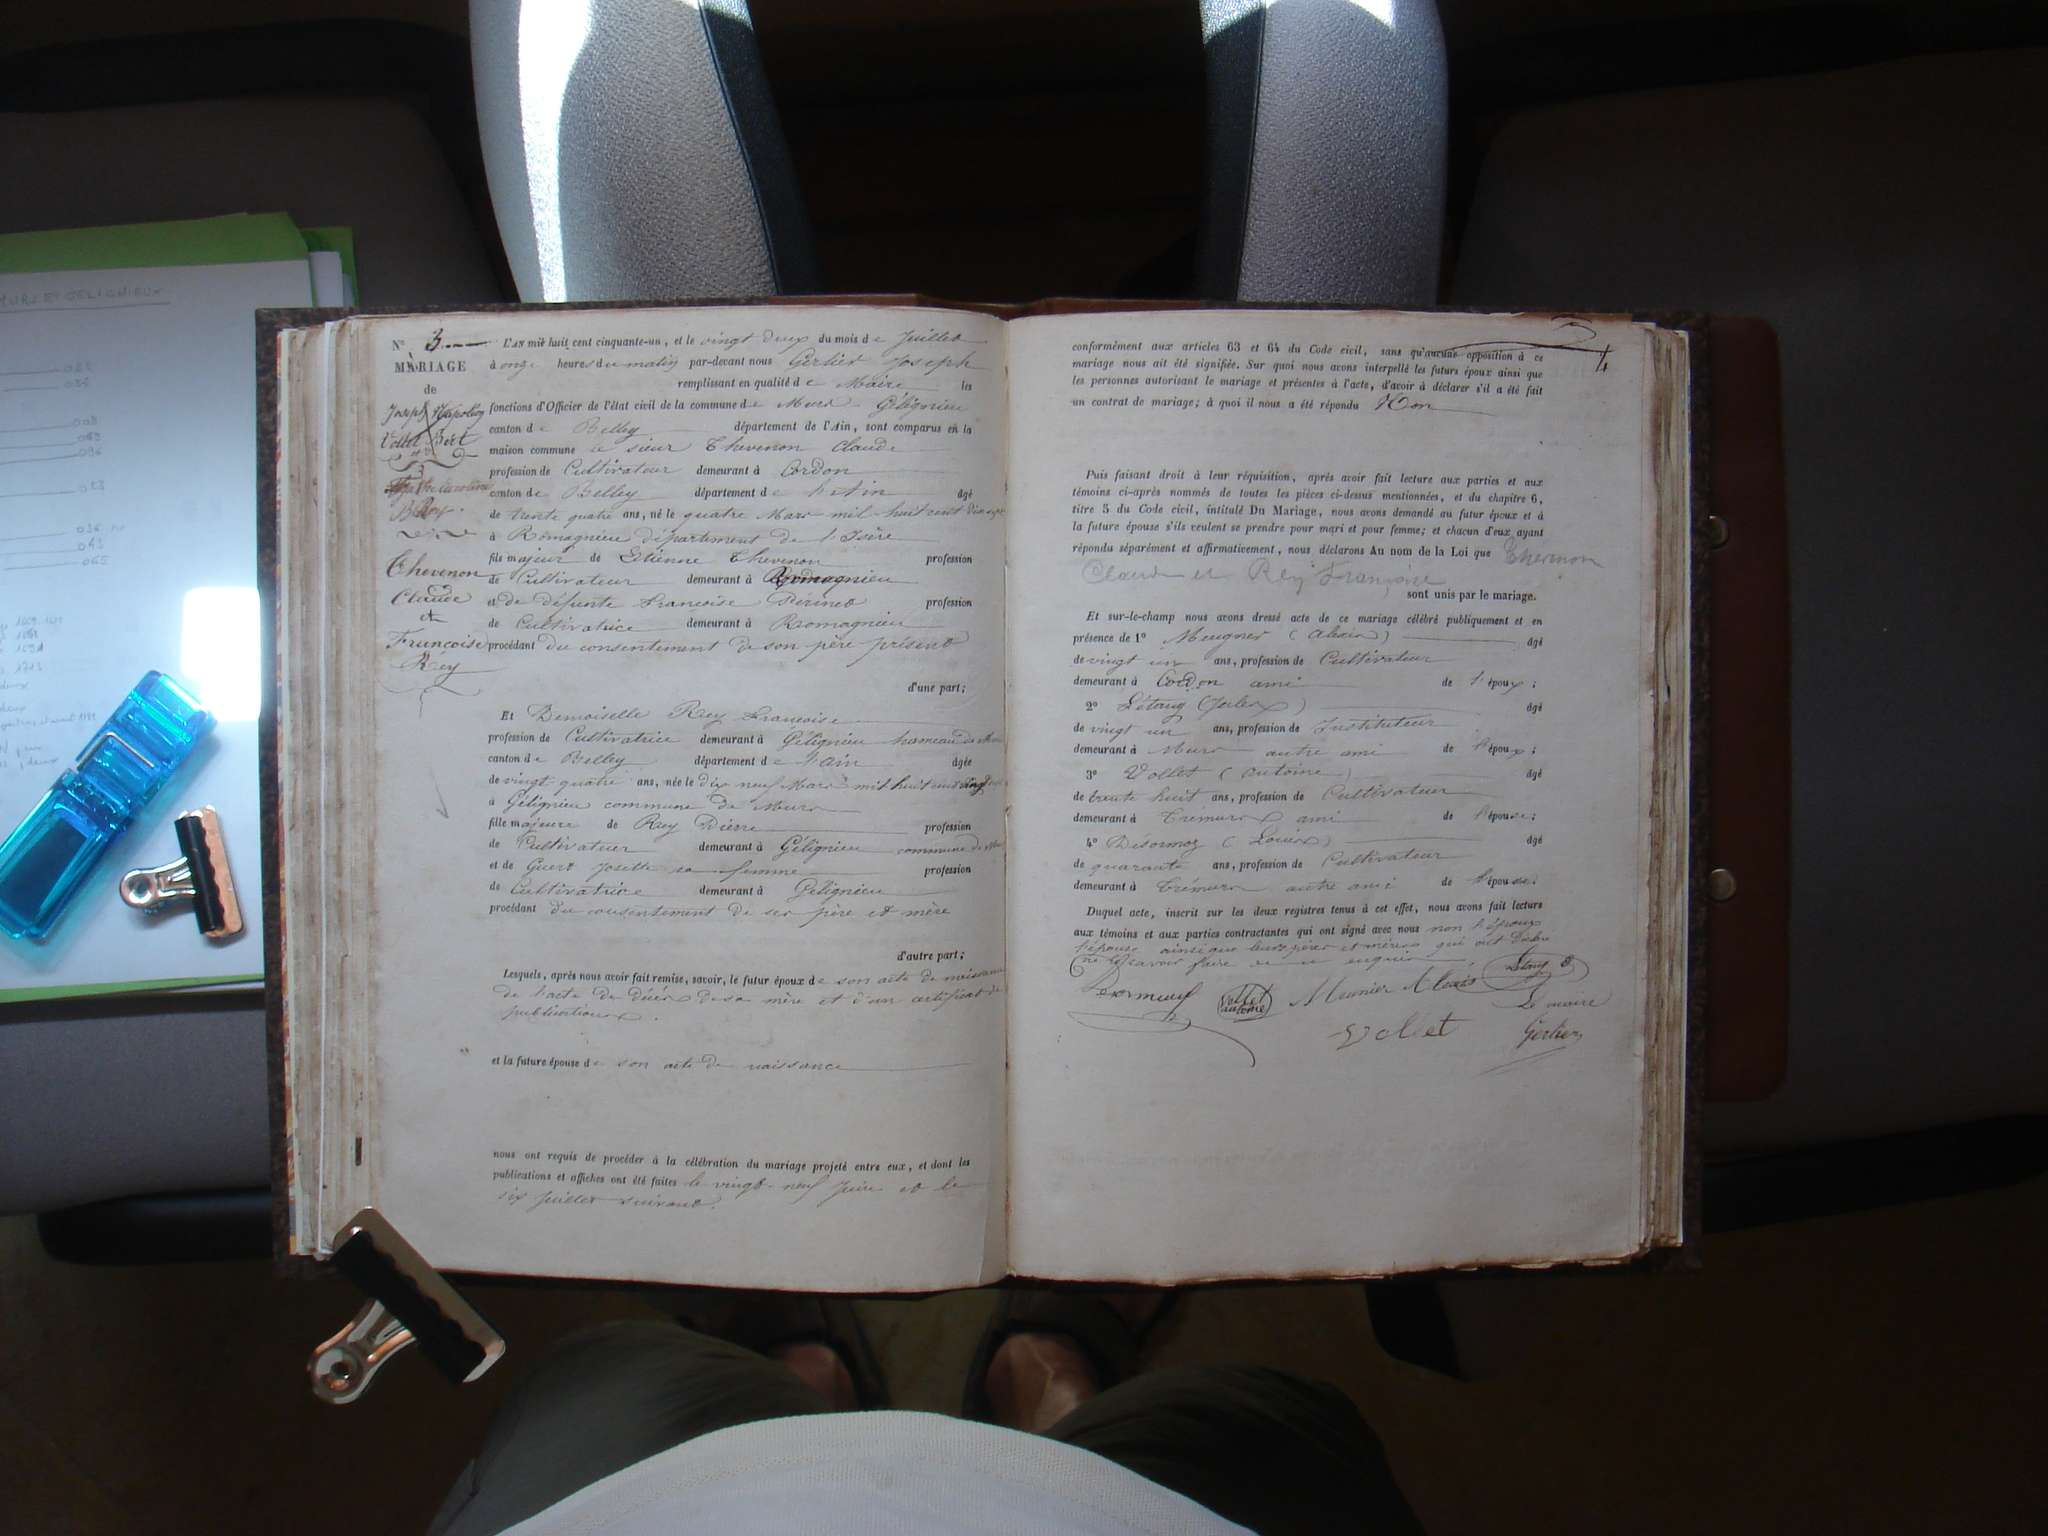 MURS ET GELIGNIEUX
N° 3
MARIAGE
de
Joseph Napoléon
Vollet Bert
et
Caroline
Thevenon
Claude
et
Françoise
Rey
L'AN mil huit cent cinquante-un, et le vingt deux du mois de Juillet
à onze heures du matin par-devant nous Gerlier Joseph
remplissant en qualité de Maire les
fonctions d'Officier de l'état civil de la commune de Murs Gélignieu
canton de Belley département de l'Ain, sont comparus en la
maison commune le sieur Thevenon Claude
profession de Cultivateur demeurant à Cordon
canton de Belley département de l'Ain âgé
de trente quatre ans, né le quatre Mars mil huit cent dix sept
à Romagnieu département de l'Isère
fils majeur de Etienne Thevenon profession
de Cultivateur demeurant à Romagnieu
et de défunte Françoise Périnet profession
de Cultivatrice demeurant à Romagnieu
procédant du consentement de son père présent
d'une part;
Et Demoiselle Rey Françoise
profession de Cultivatrice demeurant à Gélignieu hameau de Murs
canton de Belley département de l'ain âgée
de vingt quatre ans, née le dix neuf Mars mil huit cent vingt
à Gélignieu commune de Murs
fille majeure de Rey Pierre profession
de Cultivateur demeurant à Gélignieu commune de Murs
et de Josette sa femme profession
de Cultivatrice demeurant à Gélignieu
procédant du consentement de ses père et mère
d'autre part;
Lesquels, après nous avoir fait remise, savoir, le futur époux de son acte de naissance
de l'acte de décès de sa mère et d'un certificat de
publications.
et la future épouse de son acte de naissance
nous ont requis de procéder à la célébration du mariage projeté entre eux, et dont les
publications et affiches ont été faites le vingt-neuf Juin et le
six Juillet suivant.
4
conformément aux articles 63 et 64 du Code civil, sans qu'aucune opposition à ce
mariage nous ait été signifiée. Sur quoi nous avons interpellé les futurs époux ainsi que
les personnes autorisant le mariage et présentes à l'acte, d'avoir à déclarer s'il a été fait
un contrat de mariage; à quoi il nous a été répondu Non
Puis faisant droit à leur réquisition, après avoir fait lecture aux parties et aux
témoins ci-après nommés de toutes les pièces ci-dessus mentionnées, et du chapitre 6,
titre 5 du Code civil, intitulé Du Mariage, nous avons demandé au futur époux et à
la future épouse s'ils veulent se prendre pour mari et pour femme; et chacun d'eux ayant
répondu séparément et affirmativement, nous déclarons Au nom de la Loi que Thevenon
Claude et Rey Françoise
sont unis par le mariage.
Et sur-le-champ nous avons dressé acte de ce mariage célébré publiquement et en
présence de 1° Meugner (Alexis) âgé
de vingt un ans, profession de Cultivateur
demeurant à Cordon ami de l'époux;
2° Létang (Jules) âgé
de vingt un ans, profession de Instituteur
demeurant à Murs autre ami de l'époux;
3° Vollet (Antoine) âgé
de trente huit ans, profession de Cultivateur
demeurant à Tremurs ami de l'épouse;
4° Désormoz (Louis) âgé
de quarante ans, profession de Cultivateur
demeurant à Trémurs autre ami de l'épouse.
Duquel acte, inscrit sur les deux registres tenus à cet effet, nous avons fait lecture
aux témoins et aux parties contractantes qui ont signé avec nous non l'époux
l'épouse ainsi que leurs pères et mères qui ont déclaré
ne le savoir faire de ce enquis
Vollet antoine Meunier Alexis Létang
Le maire
Vollet Gerlier